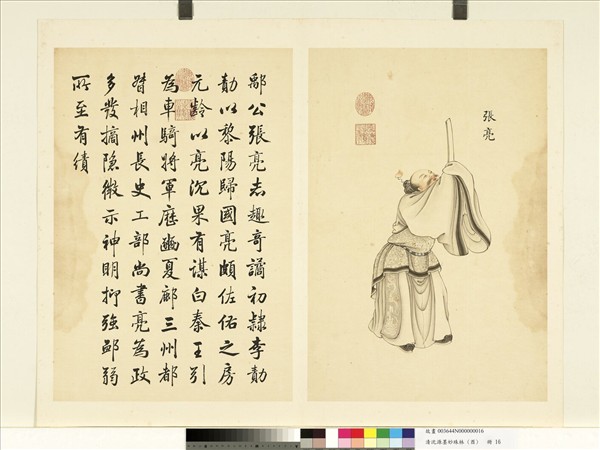 張亮
鄖公張亮志趣奇譎初隸李勣
勣以黎陽歸國亮頗佐佑之房
元齡以亮沉果有謀白秦王引
為車騎將軍歷豳夏鄜三州都
督相州長史工部尚書亮為政
多發擿隱微示神明抑強卹弱
所至有績
故畫 003644N000000016
清沈源墨妙珠林（酉） 冊 16